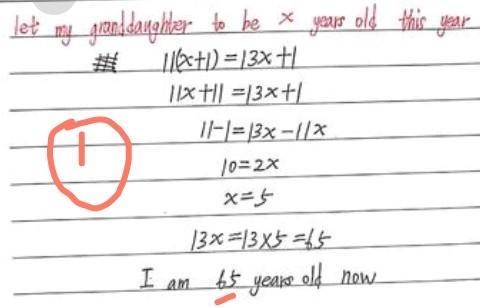 let my granddaughter to be x years old this year
11(x+1)=13x+1
11x+11=13x+1
11-1=13x-11x
10=2x
1
x=5
13x=13x5=65
I am 65 years old now